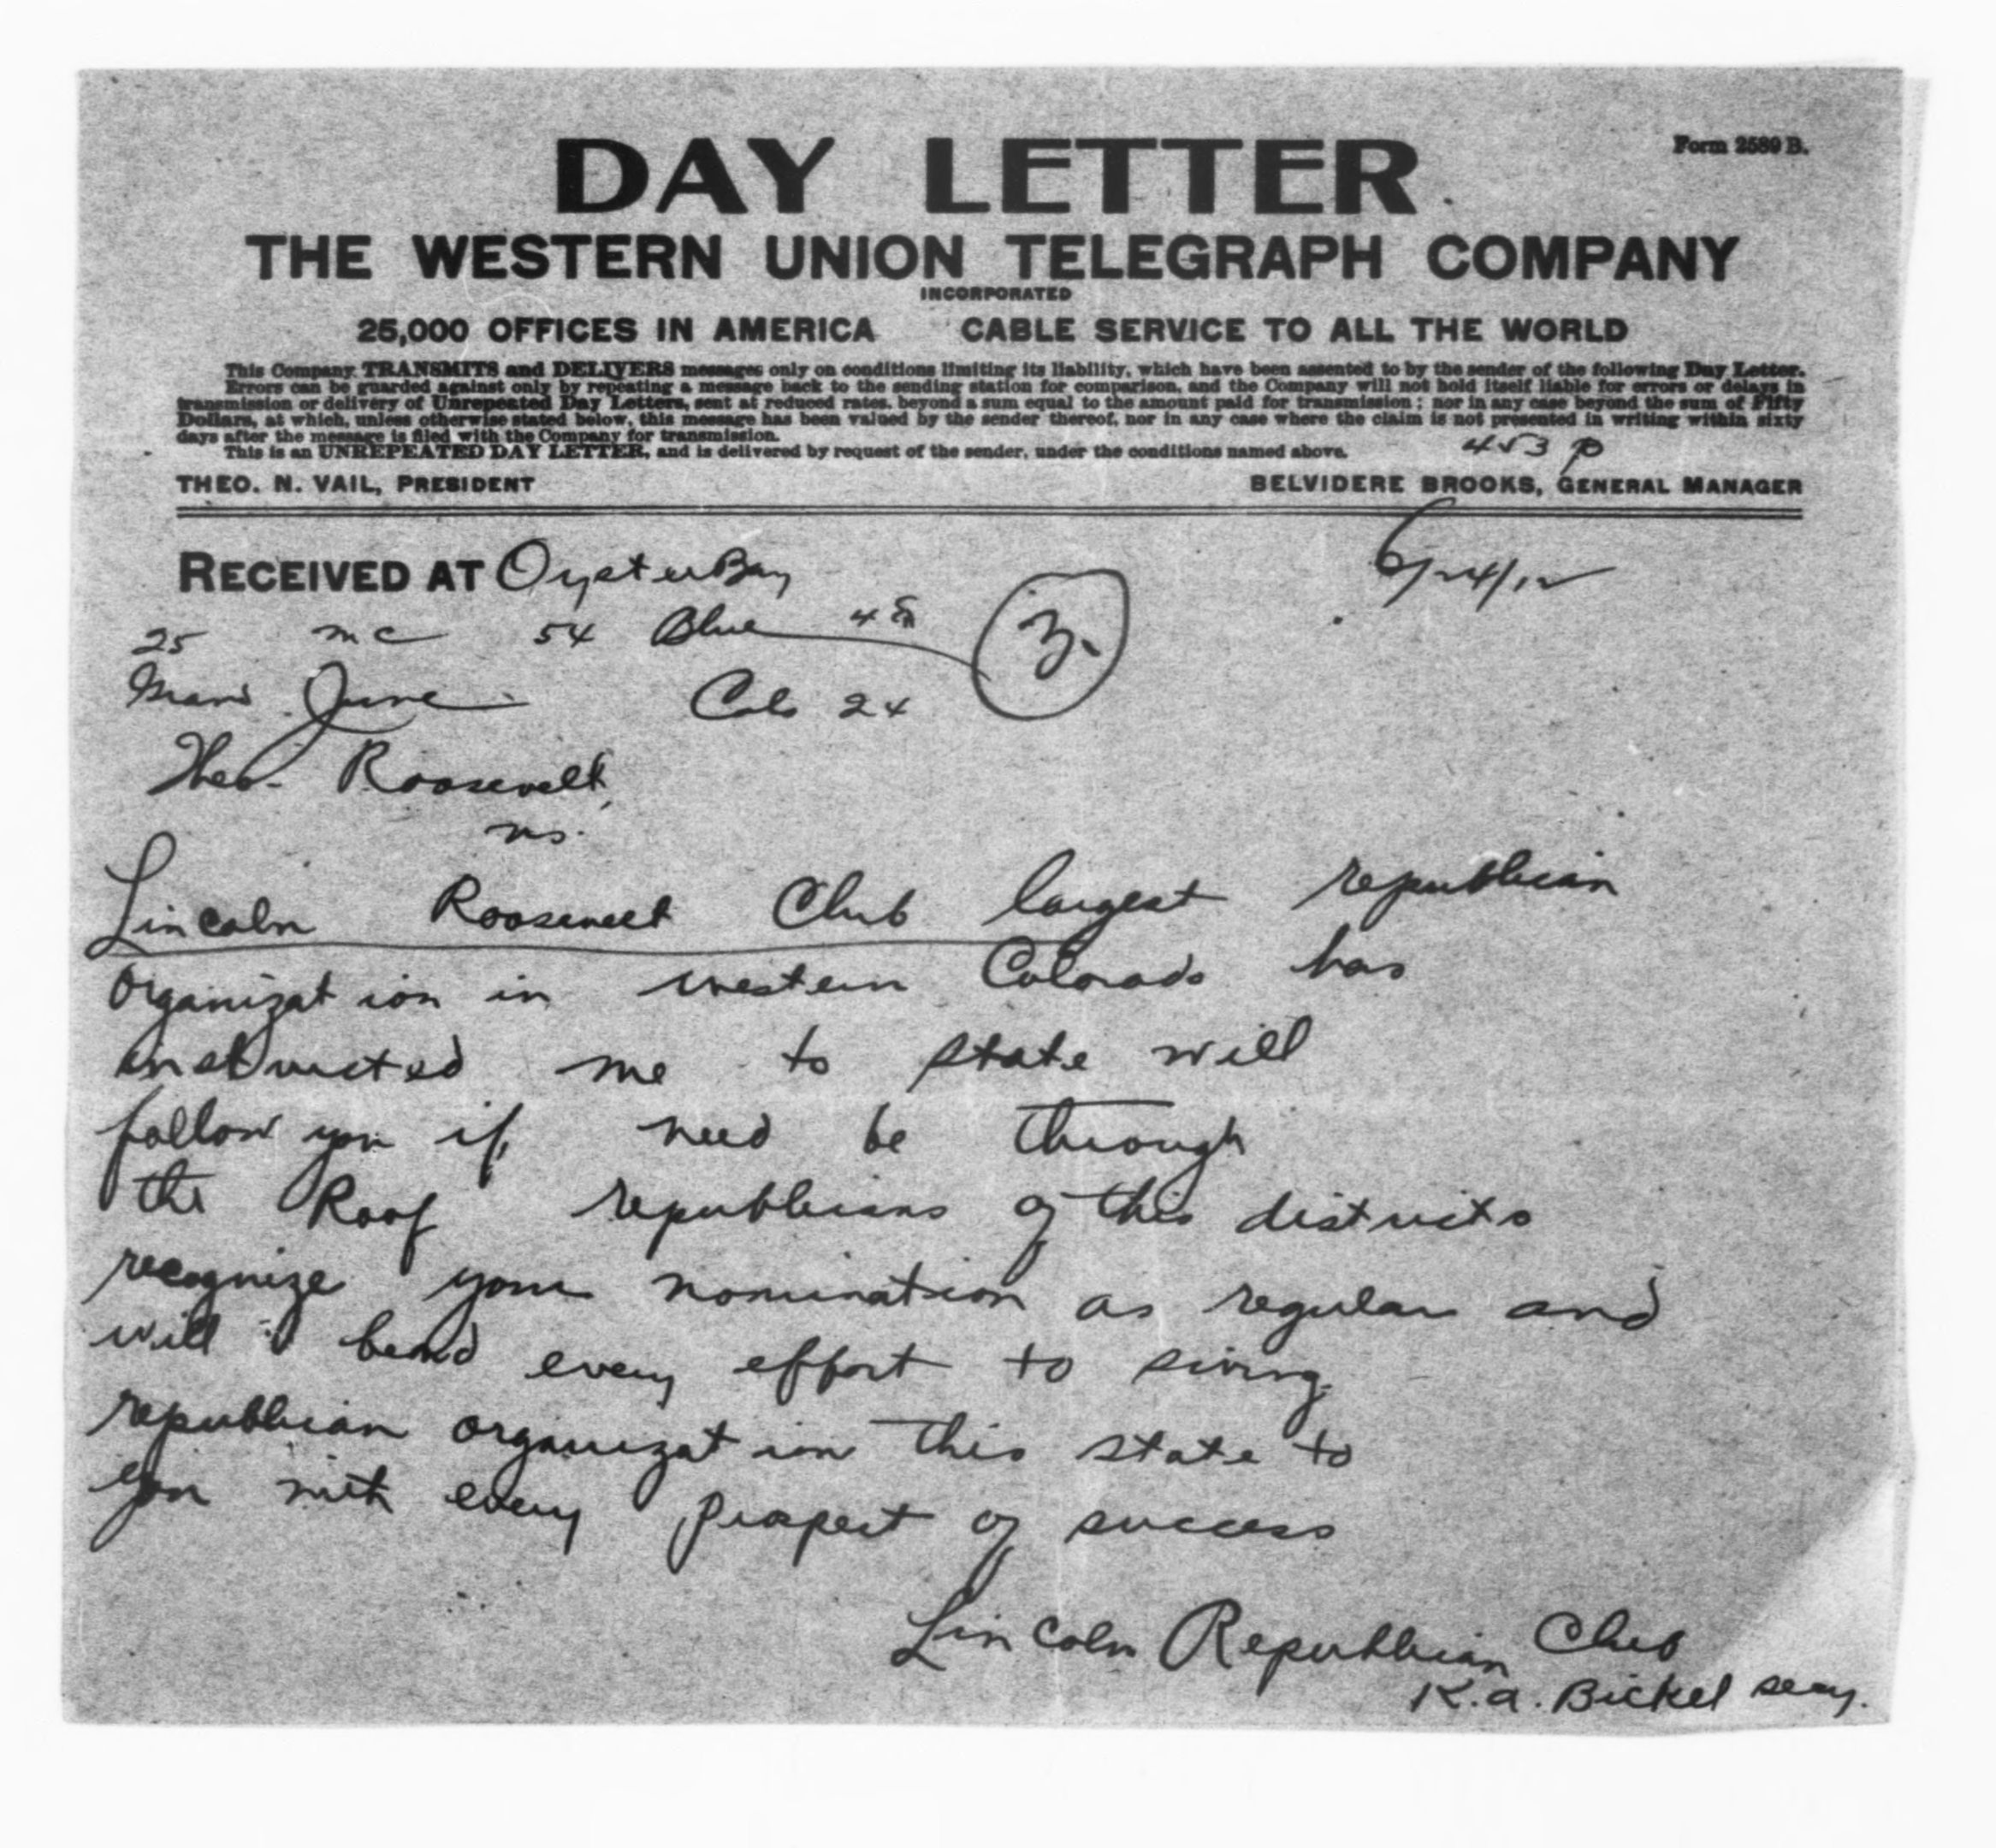 Form 2589 B.
DAY LETTER
THE WESTERN UNION TELEGRAPH COMPANY
INCORPORATED
25,000 OFFICES IN AMERICA CABLE SERVICE TO ALL THE WORLD
This Company TRANSMITS and DELIVERS messages only on conditions limiting its liability, which have been assented to by the sender of the following Day Letter.
Errors can be guarded against only by repeating a message back to the sending station for comparison, and the Company will not hold itself liable for errors or delays in
transmission or delivery of Unrepeated Day Letters, sent at reduced rates, beyond a sum equal to the amount paid for transmission; nor in any case beyond the sum of Fifty
Dollars, at which, unless otherwise stated below, this message has been valued by the sender thereof, nor in any case where the claim is not presented in writing within sixty
days after the message is filed with the Company for transmission.
This is an UNREPEATED DAY LETTER, and is delivered by request of the sender, under the conditions named above.
453 p
THEO. N. VAIL, PRESIDENT BELVIDERE BROOKS, GENERAL MANAGER
RECEIVED AT Oyster Bay 6/24/12
25 mc 54 Blue 3.
June Colo 24
Theo. Roosevelt,
Lincoln Roosevelt Club largest republican
organization in western Colorado has
instructed me to state will
follow you if need be through
the Roof republicans of this districts
recognize your nomination as regular and
will bend every effort to swing
republican organization this state to
you with every prospect of success
Lincoln Republican Club
K.A. Bickel secy.